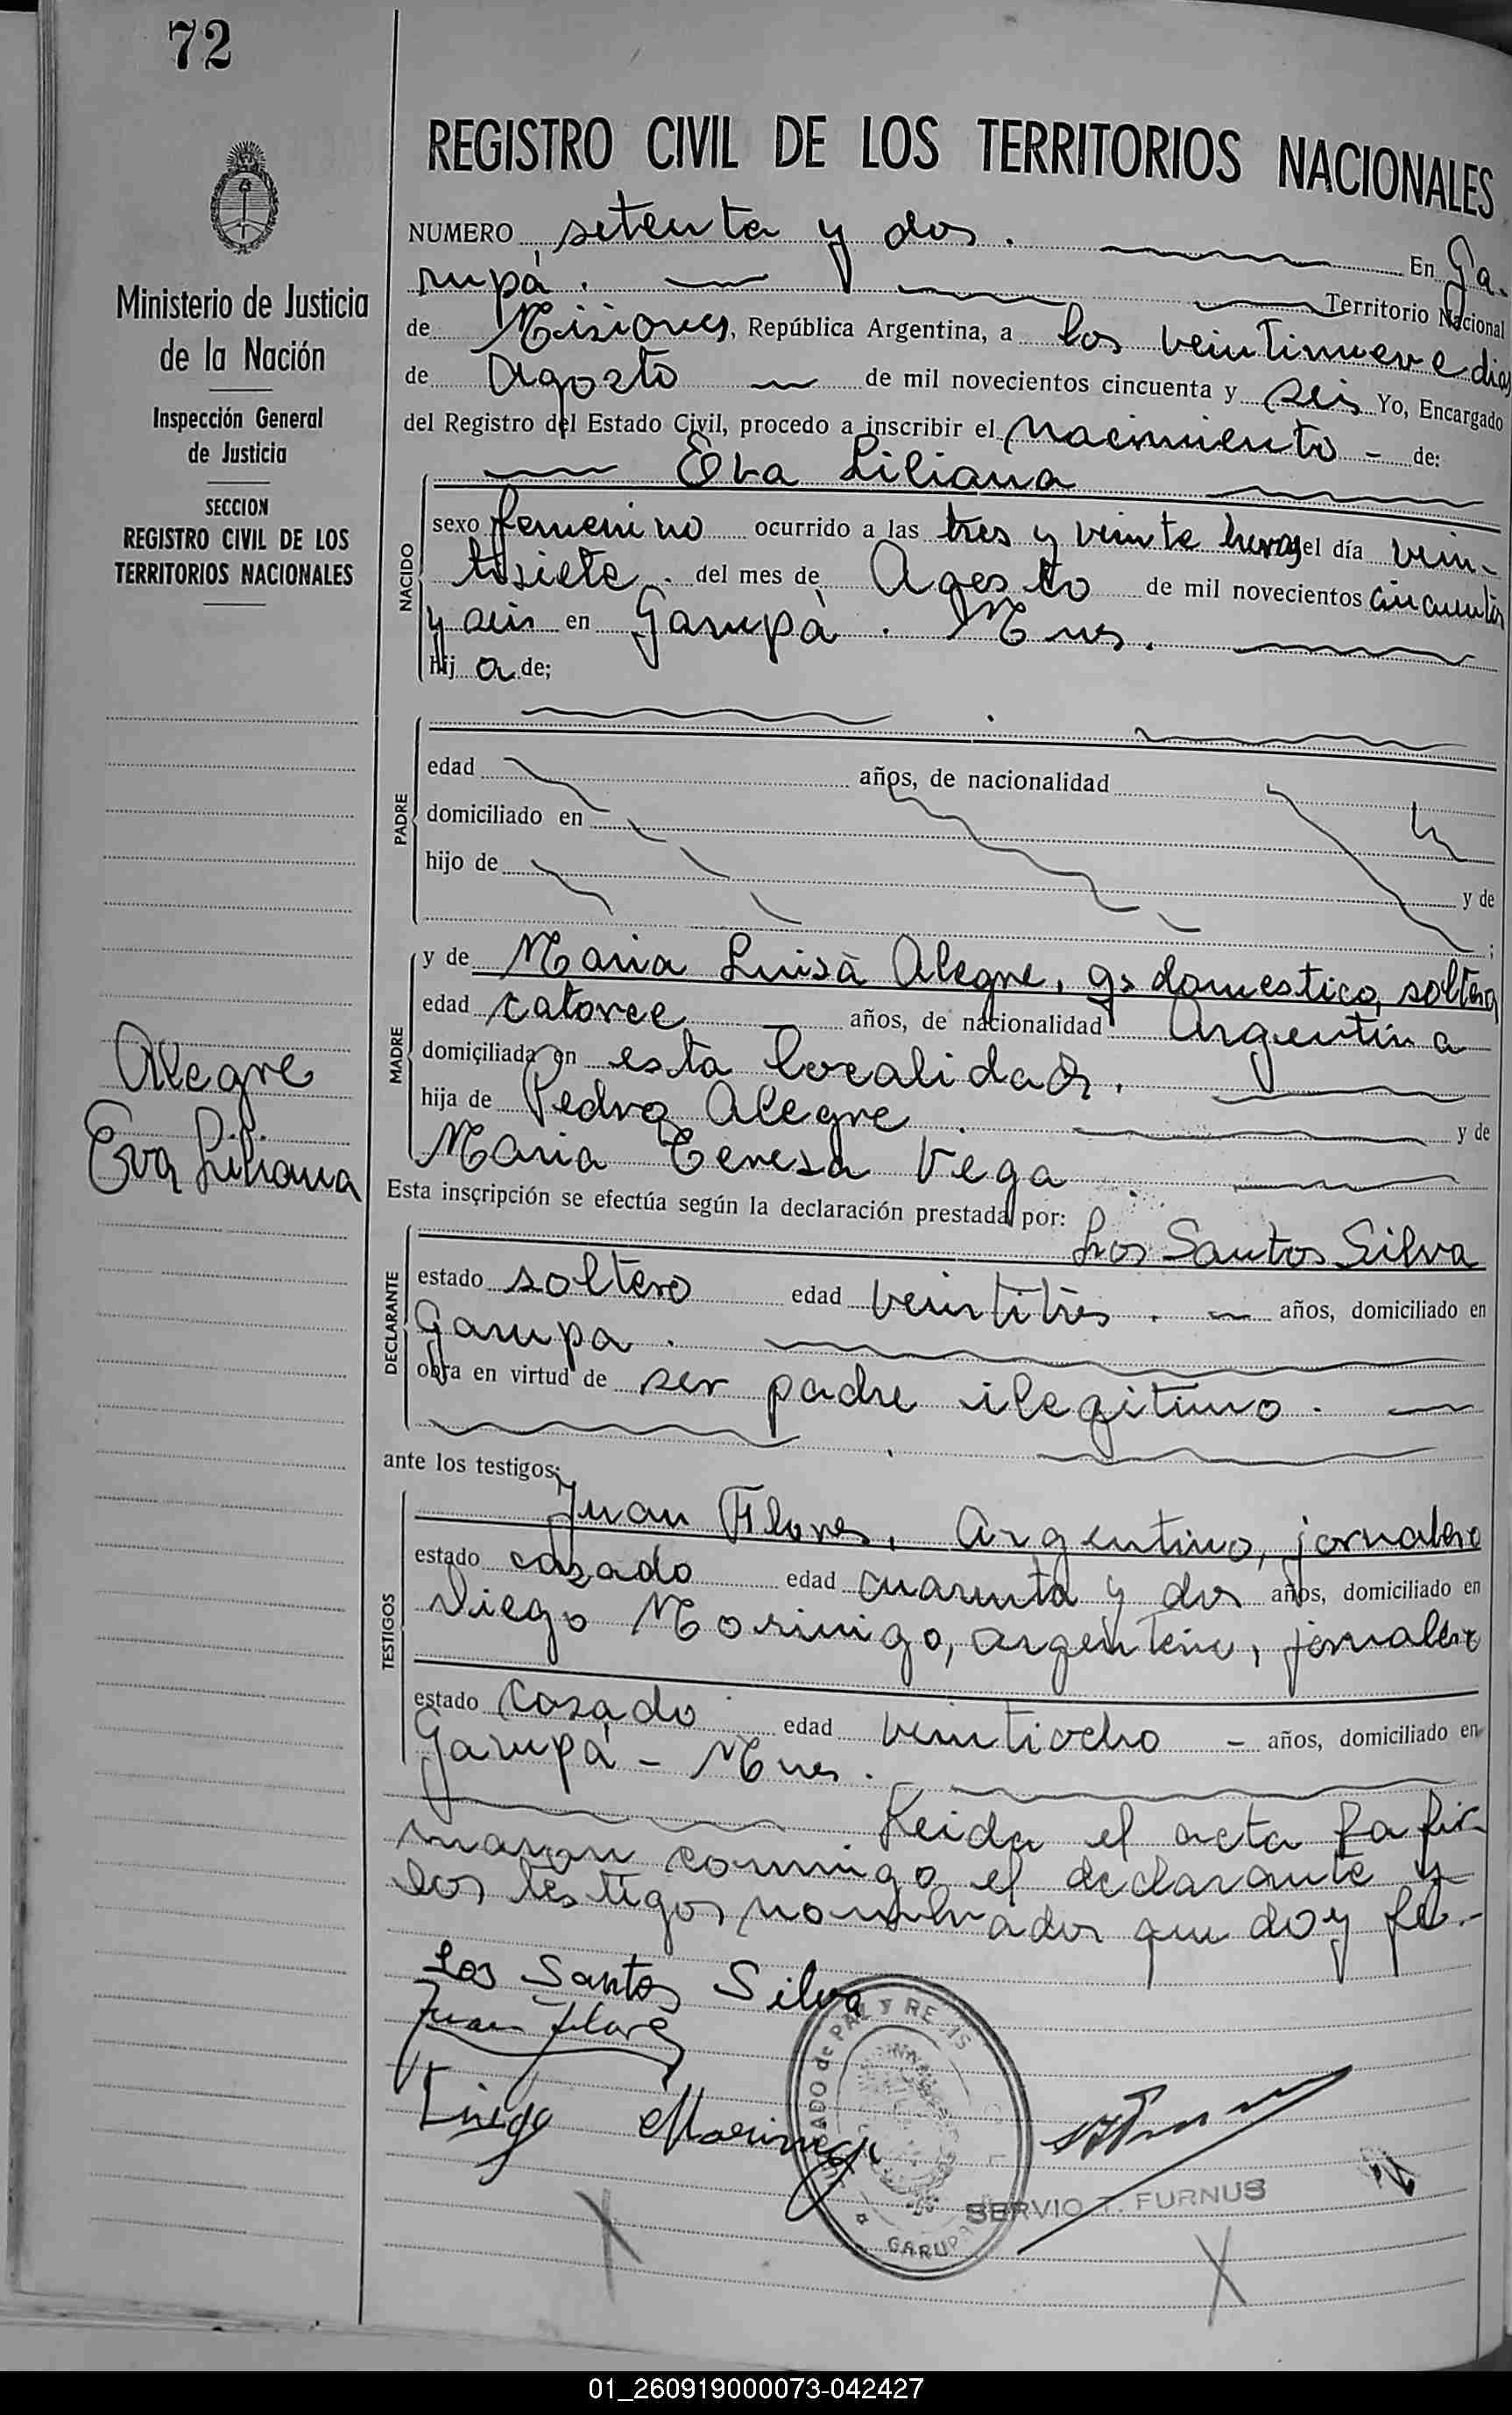 72
REGISTRO CIVIL DE LOS TERRITORIOS NACIONALES
Ministerio de Justicia
de la Nación
Inspección General
de Justicia
SECCION
REGISTRO CIVIL DE LOS
TERRITORIOS NACIONALES
Alegre
Eva Liliana
NUMERO setenta y dos. En Ga-
rupá. Territorio Nacional
de Misiones, República Argentina, a los veintinueve dias
de Agosto de mil novecientos cincuenta y seis Yo, Encargado
del Registro del Estado Civil, procedo a inscribir el nacimiento - de:
Eva Liliana
NACIDO
sexo femenino ocurrido a las tres y veinte horas del día vein-
tisiete. del mes de Agosto de mil novecientos cincuenta
y seis en Garupá. Mnes.
hij a de;
PADRE
edad años, de nacionalidad
domiciliado en
hijo de y de
;
MADRE
y de Maria Luisa Alegre, qs domestico, soltera
edad catorce años, de nacionalidad Argentina
domiciliada en esta localidad.
hija de Pedro Alegre. y de
Maria Teresa Vega
Esta inscripción se efectúa según la declaración prestada por:
Los Santos Silva
DECLARANTE
estado soltero edad veintitres. años, domiciliado en
Garupa.
obra en virtud de ser padre ilegitimo.
ante los testigos;
TESTIGOS
Juan Flores, Argentino, jornalero
estado casado edad cuarenta y dos años, domiciliado en
Diego Morinigo, argentino, jornalero
estado casado edad veintiocho - años, domiciliado en
Garupá - Mnes.
Leida el acta la fir-
maron conmigo el declarante y
los testigos nombrados que doy fe.-
Los Santos Silva
Juan Flores
Diego Morinigo
JUZGADO de PAZ Y REGIS
GARUPA
SERVIO T. FURNUS
01_260919000073-042427